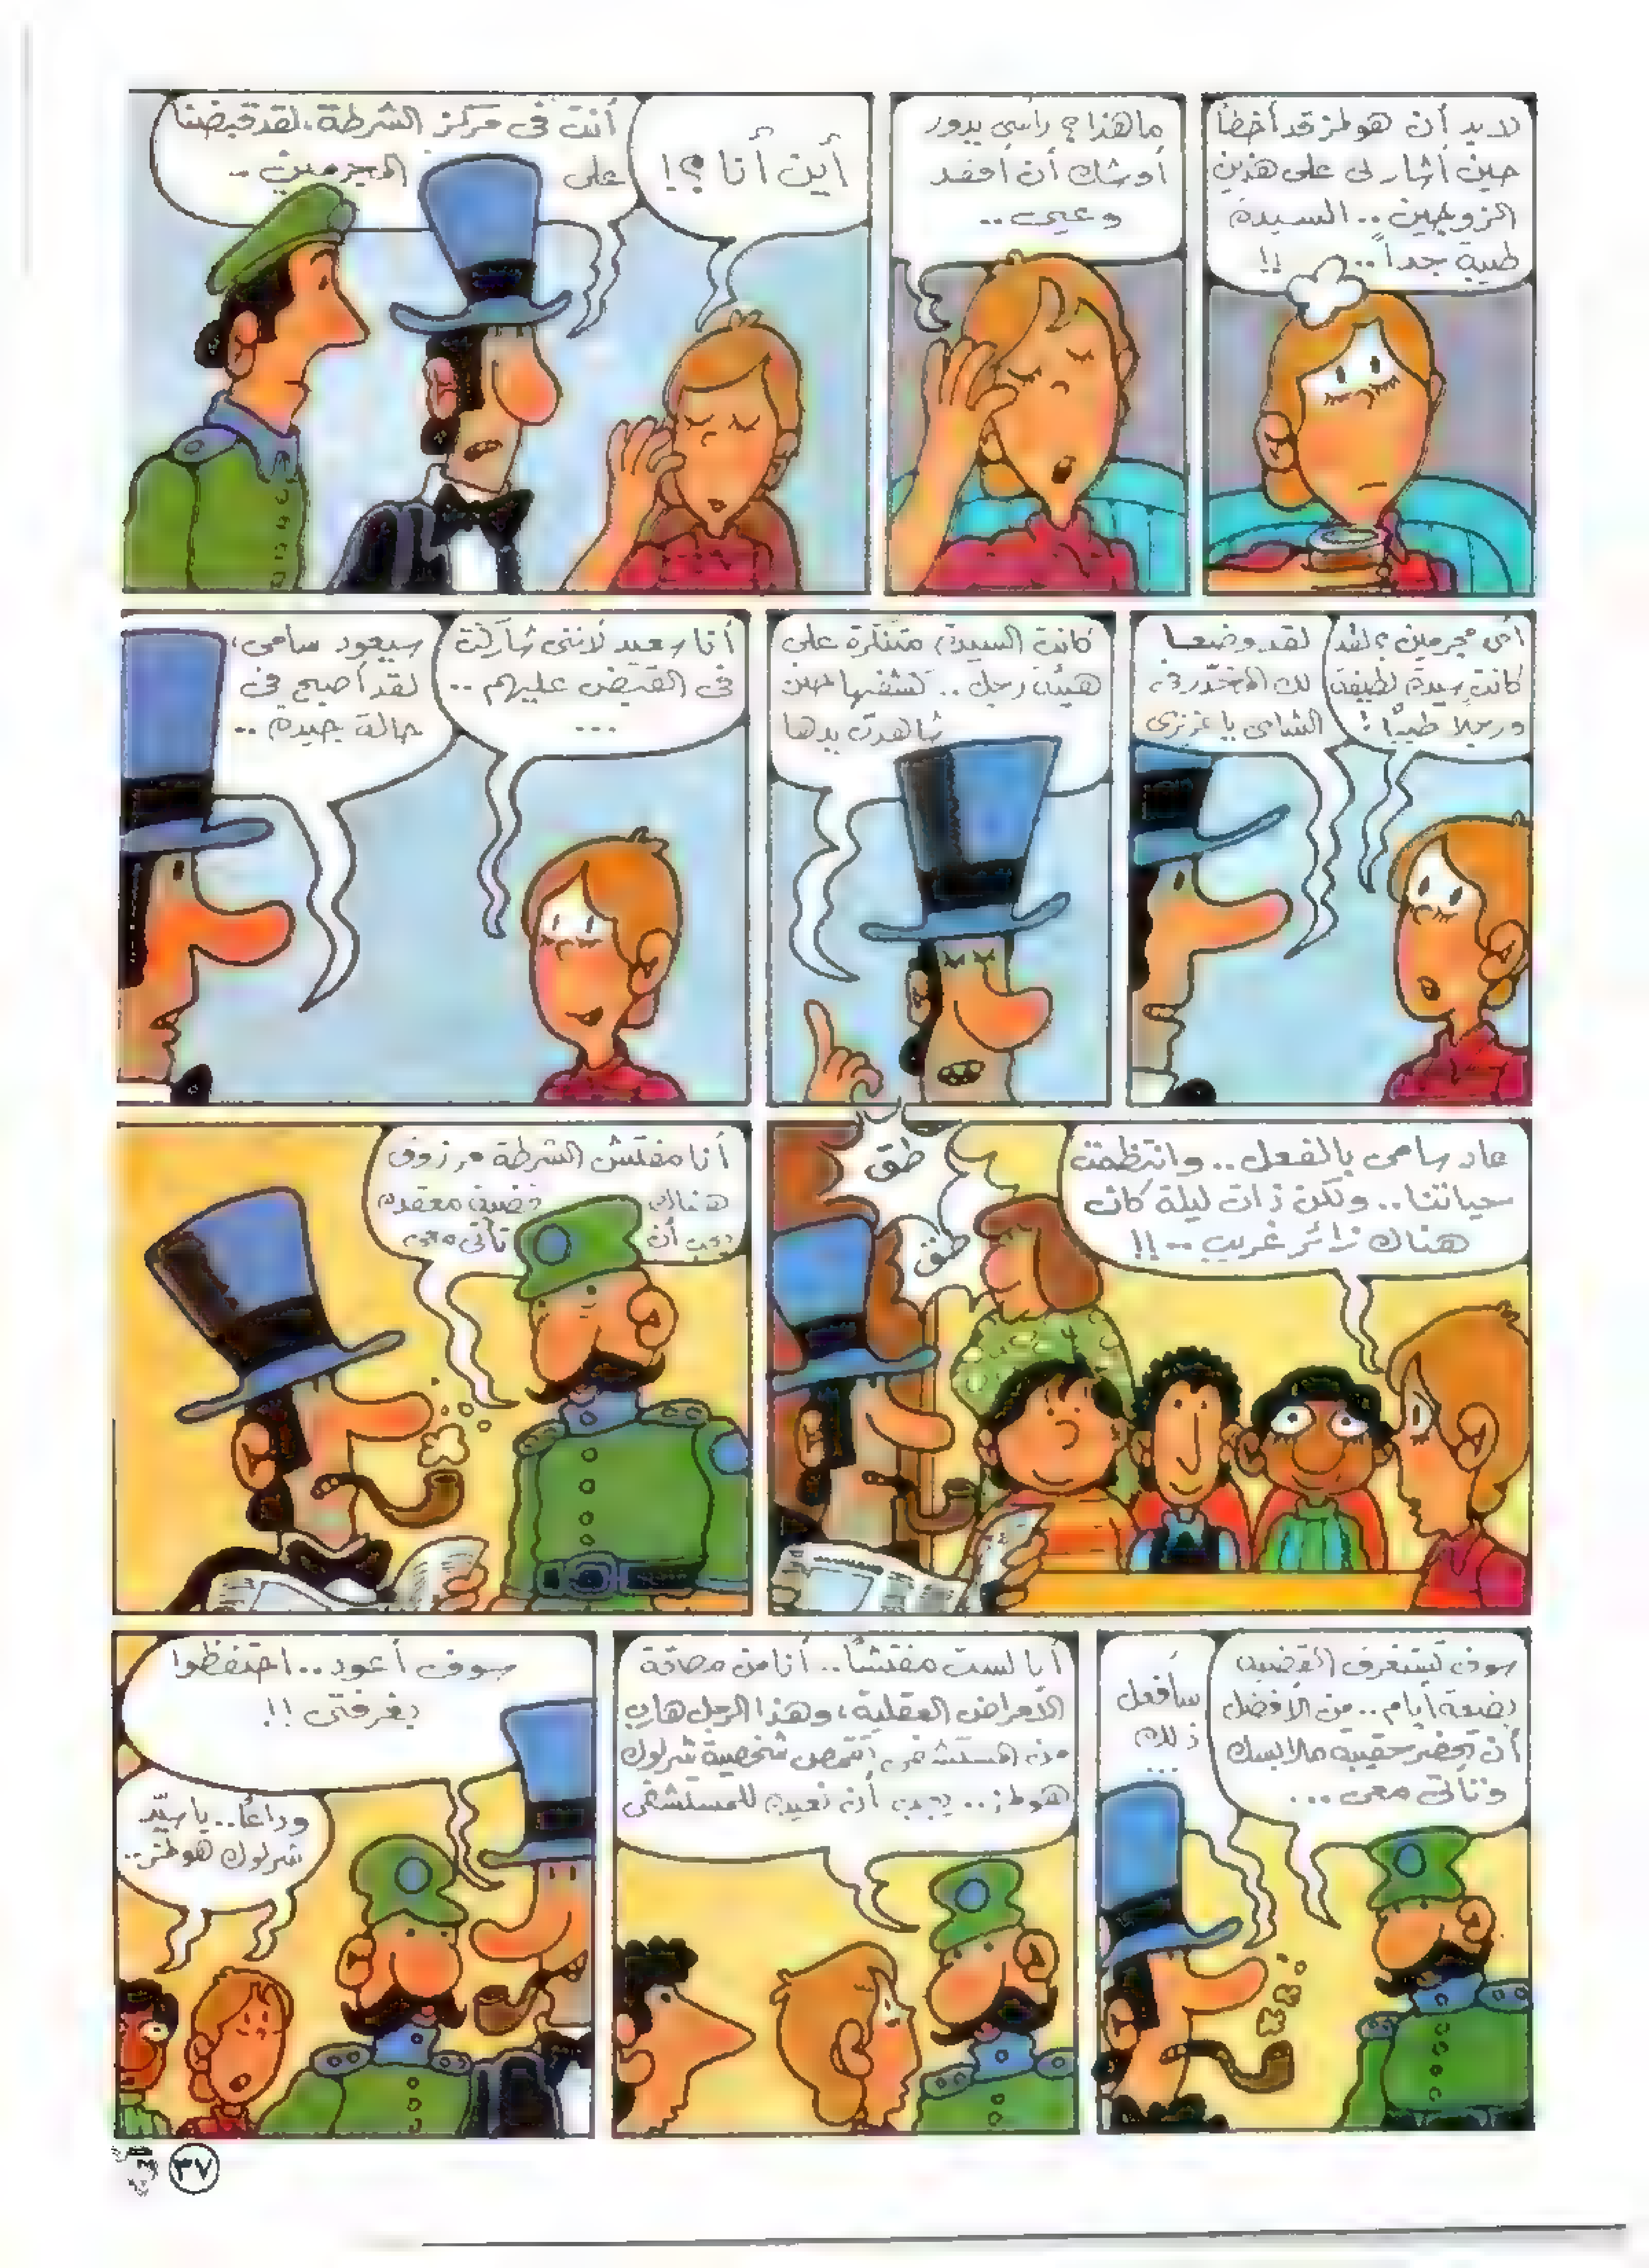 لابد أن هولمز قد أخطأ
حين أشار لى على هذين
الزوجين.. السيدة
طيبة جداً.. !!
ما هذا؟ رأسى يدور
أوشك أن أفقد
وعيى..
أين أنا؟!
أنت فى مركز الشرطة، لقد قبضنا
على المجرمين..
أى مجرمين؟ لقد
كانت سيدة لطيفة
ورجلاً طيباً!
لقد وضعا
لك المخدر فى
الشاى يا عزيزى
كانت السيدة متنكرة على
هيئة رجل.. كشفتها حين
شاهدت يدها
أنا سعيد لأننى شاركت
فى القبض عليهم..
...
سيعود سامى،
لقد أصبح فى
حالة جيدة..
عاد سامى بالفعل.. وانتظمت
حياتنا.. ولكن ذات ليلة كان
هناك زائر غريب..!!
طق
طق
أنا مفتش الشرطة مرزوق
هناك قضية معقدة
يجب أن تأتى معى
سوف تستغرق القضية
بضعة أيام.. من الأفضل
أن تحضر حقيبة ملابسك
وتأتى معى...
سأفعل
ذلك
...
أنا لست مفتشاً.. أنا من مصحة
الأمراض العقلية، وهذا الرجل هارب
من المستشفى تقمص شخصية شرلوك
هولمز.. يجب أن نعيده للمستشفى
سوف أعود.. احتفظوا
بغرفتى !!
وداعاً.. يا سيد
شرلوك هولمز..
٣٧